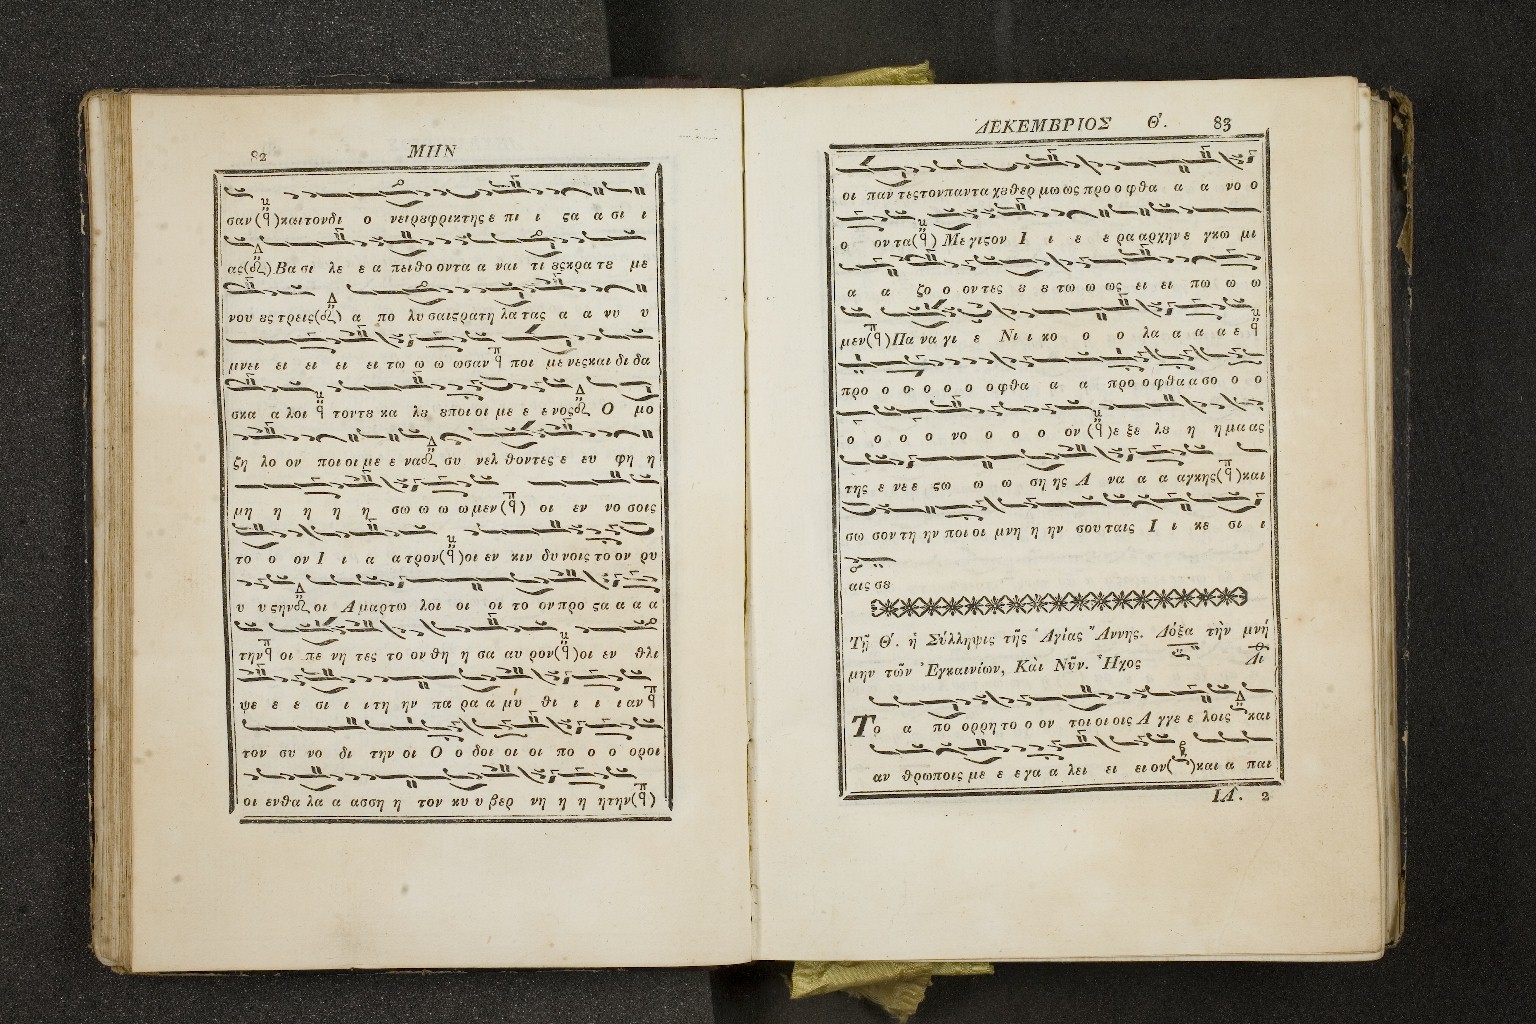 82 ΜΗΝ
σαν(q) και τον δι ο νει ρȣ φρικτης ε πι ι ϛα α σι ι
ας(Δ) Βα σι λε ε α πειθο οντα α ναι τι ȣς κρα τȣ με
νου ȣς τρεις(Δ) α πο λυ σαι ϛρατη λα τας α α νυ υ
μνει ει ει ει ει τω ω ω ωσαν q ποι με νες και δι δα
σκα α λοι q τον τȣ κα λȣ ȣ ποι οι με ε ε νος Δ Ο μο
ζη λο ον ποι οι με ε να Δ συ νελ θοντες ε ευ φη η
μη η η η η σω ω ω ω μεν(q) οι εν νο σοις
το ο ον Ι ι α α τρον(q) οι εν κιν δυ νοις το ον ρυ
υ υ ϛην Δ οι Α μαρτω λοι οι οι το ον προ ϛα α α α
την q οι πε νη τες το ον θη η σα αυ ρον(q) οι εν θλι
ψε ε ε σι ι ι τη ην πα ρα α μύ θι ι ι ι αν q
τον συ νο δι την οι Ο ο δοι οι οι πο ο ο οροι
οι εν θα λα α ασση η τον κυ υ βερ νη η η η την(q)
ΔΕΚΕΜΒΡΙΟΣ Θ'. 83
οι παν τες τον παντα χȣ θερ μω ως προ ο φθα α α νο ο
ο ον τα(q) Με γιϛον Ι ι ε ε ρα αρχην ε γκω μι
α α ζο ο ον τες ȣ ȣ τω ω ως ει ει πω ω ω
μεν(q) Πα να γι ε Νι ι κο ο ο λα α α α ε q
προ ο ο ο ο ο ο φθα α α προ ο φθα α σο ο ο
ο ο ο ο νο ο ο ο ον (q) ε ξε λȣ η η μα ας
της ε νε ε ϛω ω ω ση ης Α να α α αγκης(q) και
σω σον τη ην ποι οι μνη η ην σου ταις Ι ι κε σι ι
αις σȣ
Τῇ Θ'. ἡ Σύλληψις τῆς Ἁγίας Ἄννης. Δόξα τὴν μνή
μην τῶν Ἐγκαινίων, Κὰι Νῦν. Ἦχος Δι
Το α πο ορρη το ο ον τοι οι οις Α γγε ε λοις και
αν θρωποις με ε ε γα α λει ει ει ον( ) και α παι
ΙΑ. 2